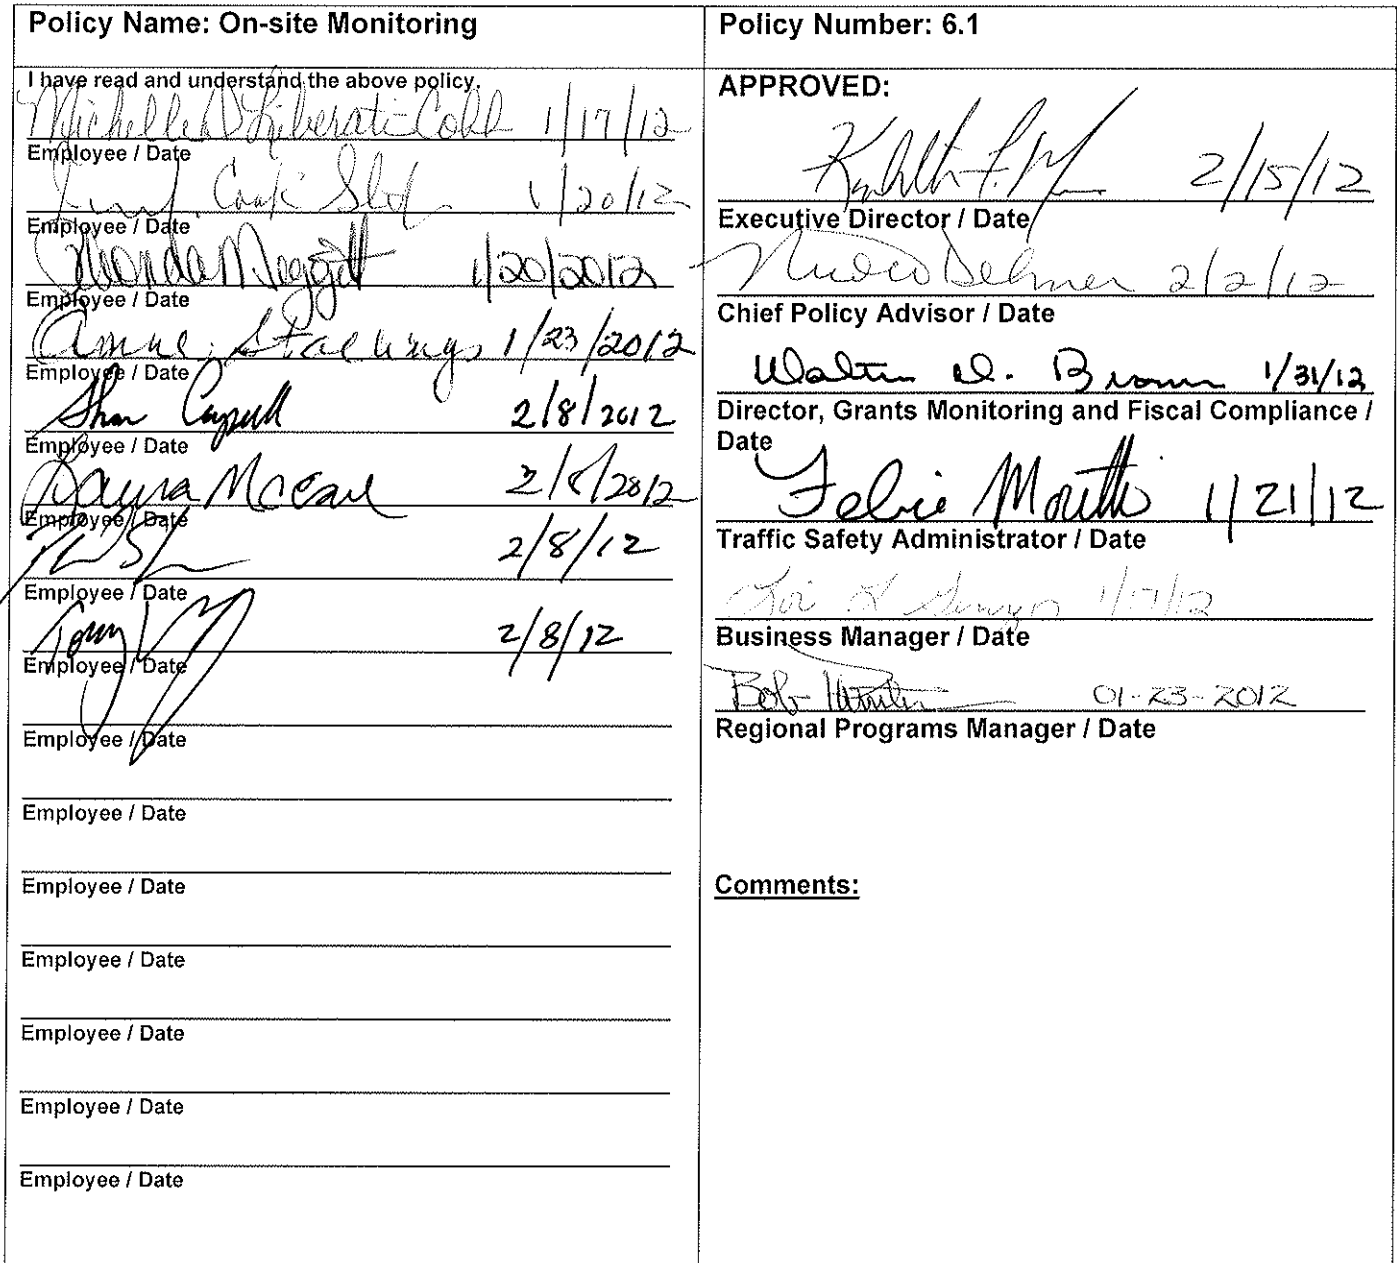 Policy Name: On-site Monitoring
I have read and understand the above policy.
Michelle D Liberati Cobb 1/17/12
Employee / Date
1/20/12
Employee / Date
1/20/2012
Employee / Date
Stallings 1/23/2012
Employee / Date
2/8/2012
Employee / Date
Employee / Date
2/8/12
Employee / Date
Tony 2/8/12
Employee / Date
Employee / Date
Employee / Date
Employee / Date
Employee / Date
Employee / Date
Employee / Date
Employee / Date
Policy Number: 6.1
APPROVED:
2/15/12
Executive Director / Date
Dehmer 2/2/12
Chief Policy Advisor / Date
Walter D. Brown 1/31/12
Director, Grants Monitoring and Fiscal Compliance /
Date
1/21/12
Traffic Safety Administrator / Date
1/17/12
Business Manager / Date
Bob 01-23-2012
Regional Programs Manager / Date
Comments: